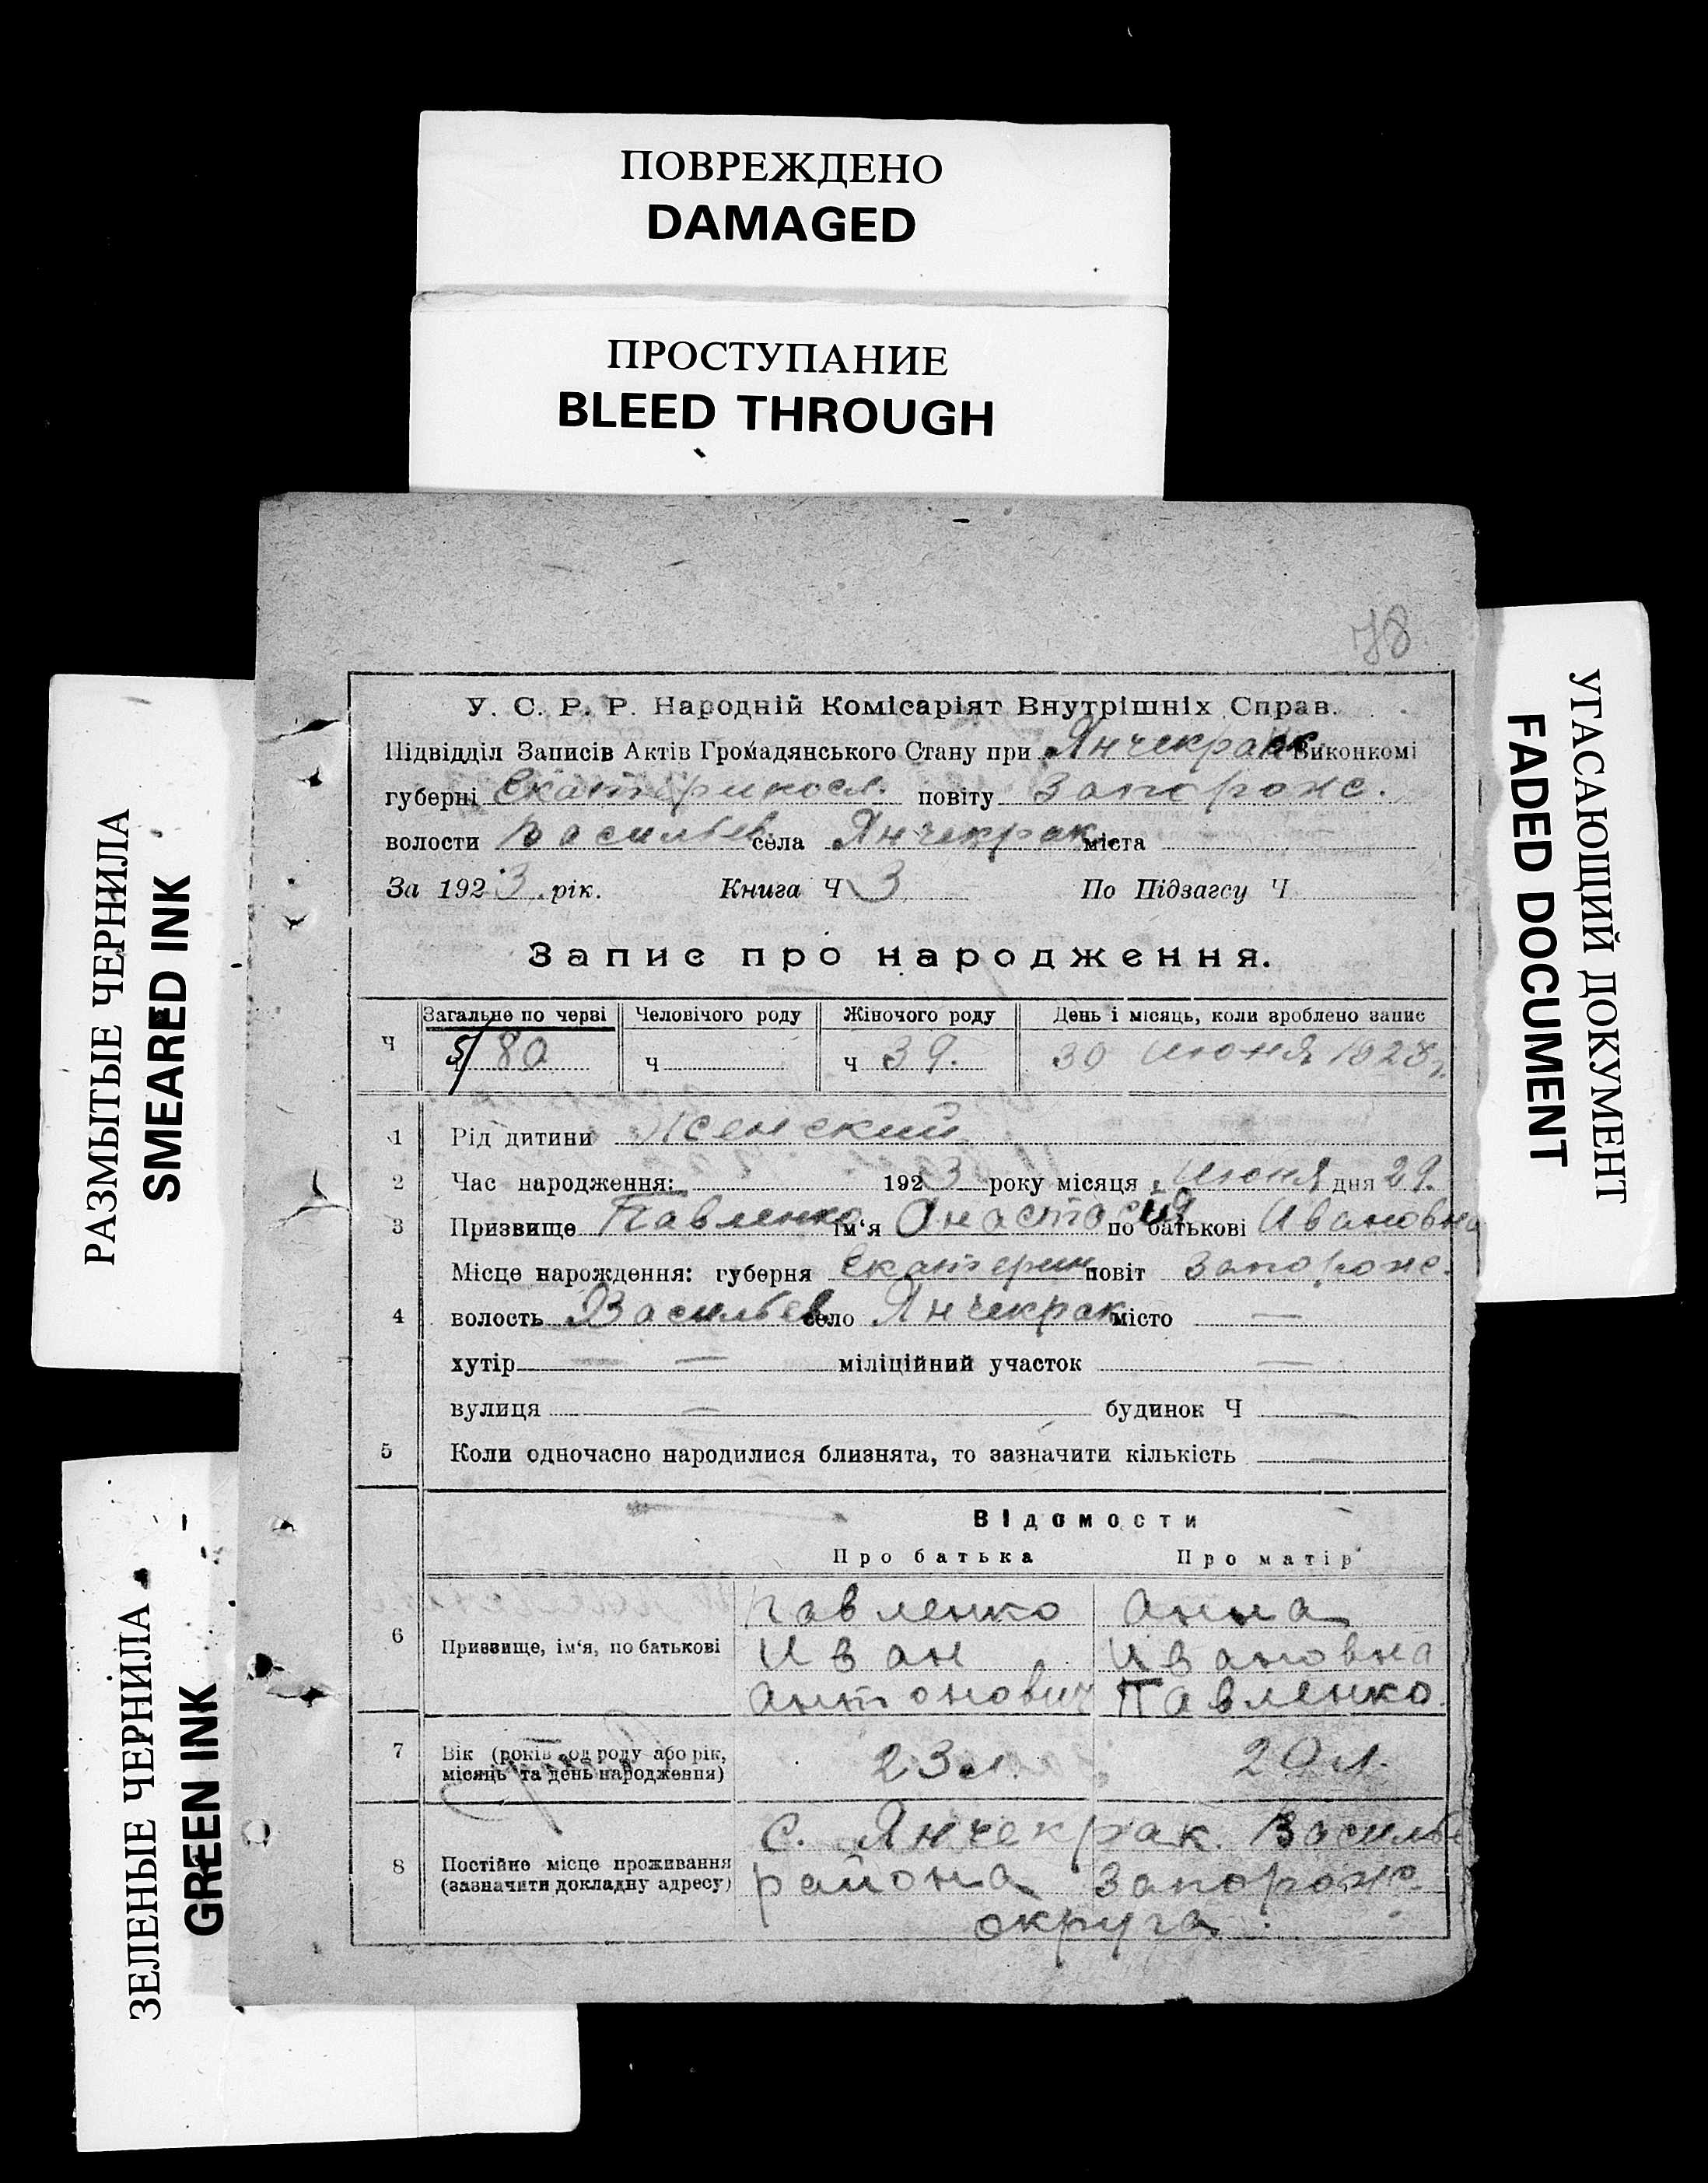 ПОВРЕЖДЕНО
DAMAGED
ПРОСТУПАНИЕ
BLEED THROUGH
РАЗМЫТЫЕ ЧЕРНИЛА
SMEARED INK
ЗЕЛЕНЫЕ ЧЕРНИЛА
GREEN INK
УГАСАЮЩИЙ ДОКУМЕНТ
FADED DOCUMENT
78
У. С. Р. Р. Народній Комісаріят Внутрішніх Справ.
Підвідділ Записів Актів Громадянського Стану при Янчекрак Виконкомі
губерні Екатериносл. повіту Запорож.
волости Васильев. села Янчекрак. міста
За 1923 рік. Книга Ч 3 По Підзагсу Ч
Запис про народження.
Ч Загальне по черзі Человічого роду Жіночого роду День і місяць, коли зроблено запис
5/80 ч ч 39. 30 июня 1923 г.
1 Рід дитини Женский
2 Час народження: 1923 року місяця июня дня 29.
3 Призвище Павленко ім‘я Анастасия по батькові Ивановна
Місце нарождення: губерня Екатерин. повіт Запорож.
4 волость Васильев. село Янчекрак місто —
хутір — — міліційний участок —
вулиця — будинок Ч —
5 Коли одночасно народилися близнята, то зазначити кількість —
Відомости
Про батька Про матір
6 Призвище, ім‘я, по батькові
Павленко Анна
Иван Ивановна
Антонович Павленко.
7 Вік (років од роду або рік, місяць та день народження) 23 л. 20 л.
8 Постійне місце проживання (зазначити докладну адресу)
с. Янчекрак. Василье
района Запорож.
округа.